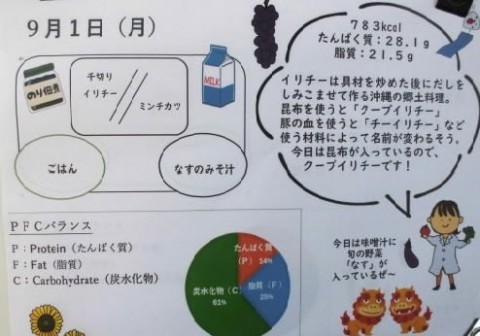 9月1日（月）
783kcal
たんぱく質：28.1g
脂質：21.5g
のり佃煮
千切り
イリチー
ミンチカツ
MILK
ごはん
なすのみそ汁
イリチーは具材を炒めた後にだしを
しみこませて作る沖縄の郷土料理。
昆布を使うと「クーブイリチー」
豚の血を使うと「チーイリチー」など
使う材料によって名前が変わるそう。
今日は昆布が入っているので、
クーブイリチーです！
PFCバランス
P：Protein（たんぱく質）
F：Fat（脂質）
C：Carbohydrate（炭水化物）
たんぱく質
（P）14%
脂質（F）
25%
炭水化物（C）
61%
今日は味噌汁に
旬の野菜
「なす」が
入っているぜ～